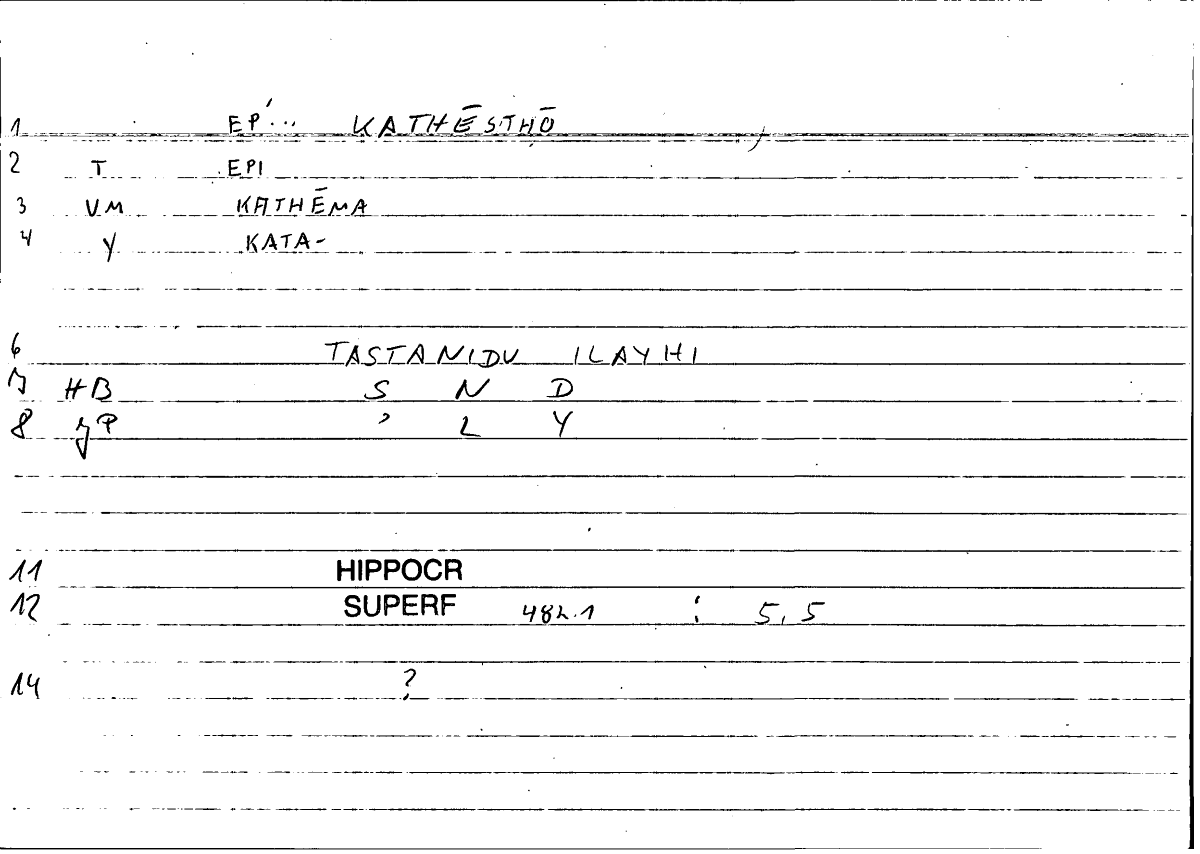 1 EP´... KATHĒSTHŌ
2 T EPI
3 VM KATHĒMA
4 Y KATA-
6 TASTANIDU ILAYHI
7 HB S N D
8 P ʾ L Y
11 HIPPOCR
12 SUPERF 482.1 : 5,5
14 ?